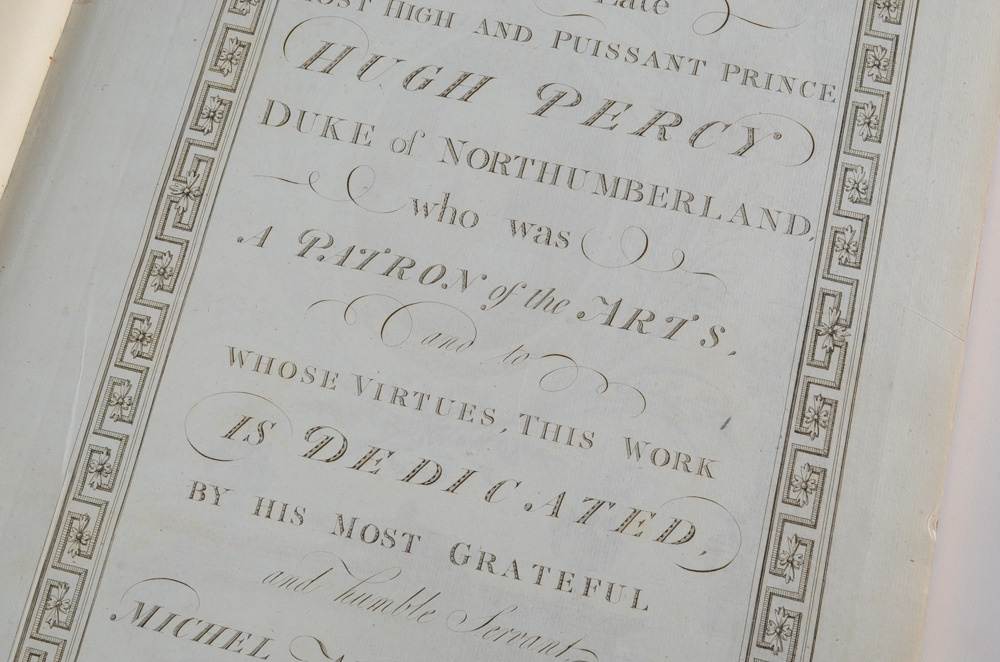 Late
MOST HIGH AND PUISSANT PRINCE
HUGH PERCY
DUKE of NORTHUMBERLAND,
who was
A PATRON of the ARTS,
and to
WHOSE VIRTUES, THIS WORK
IS DEDICATED,
BY HIS MOST GRATEFUL
and humble Servant
MICHEL